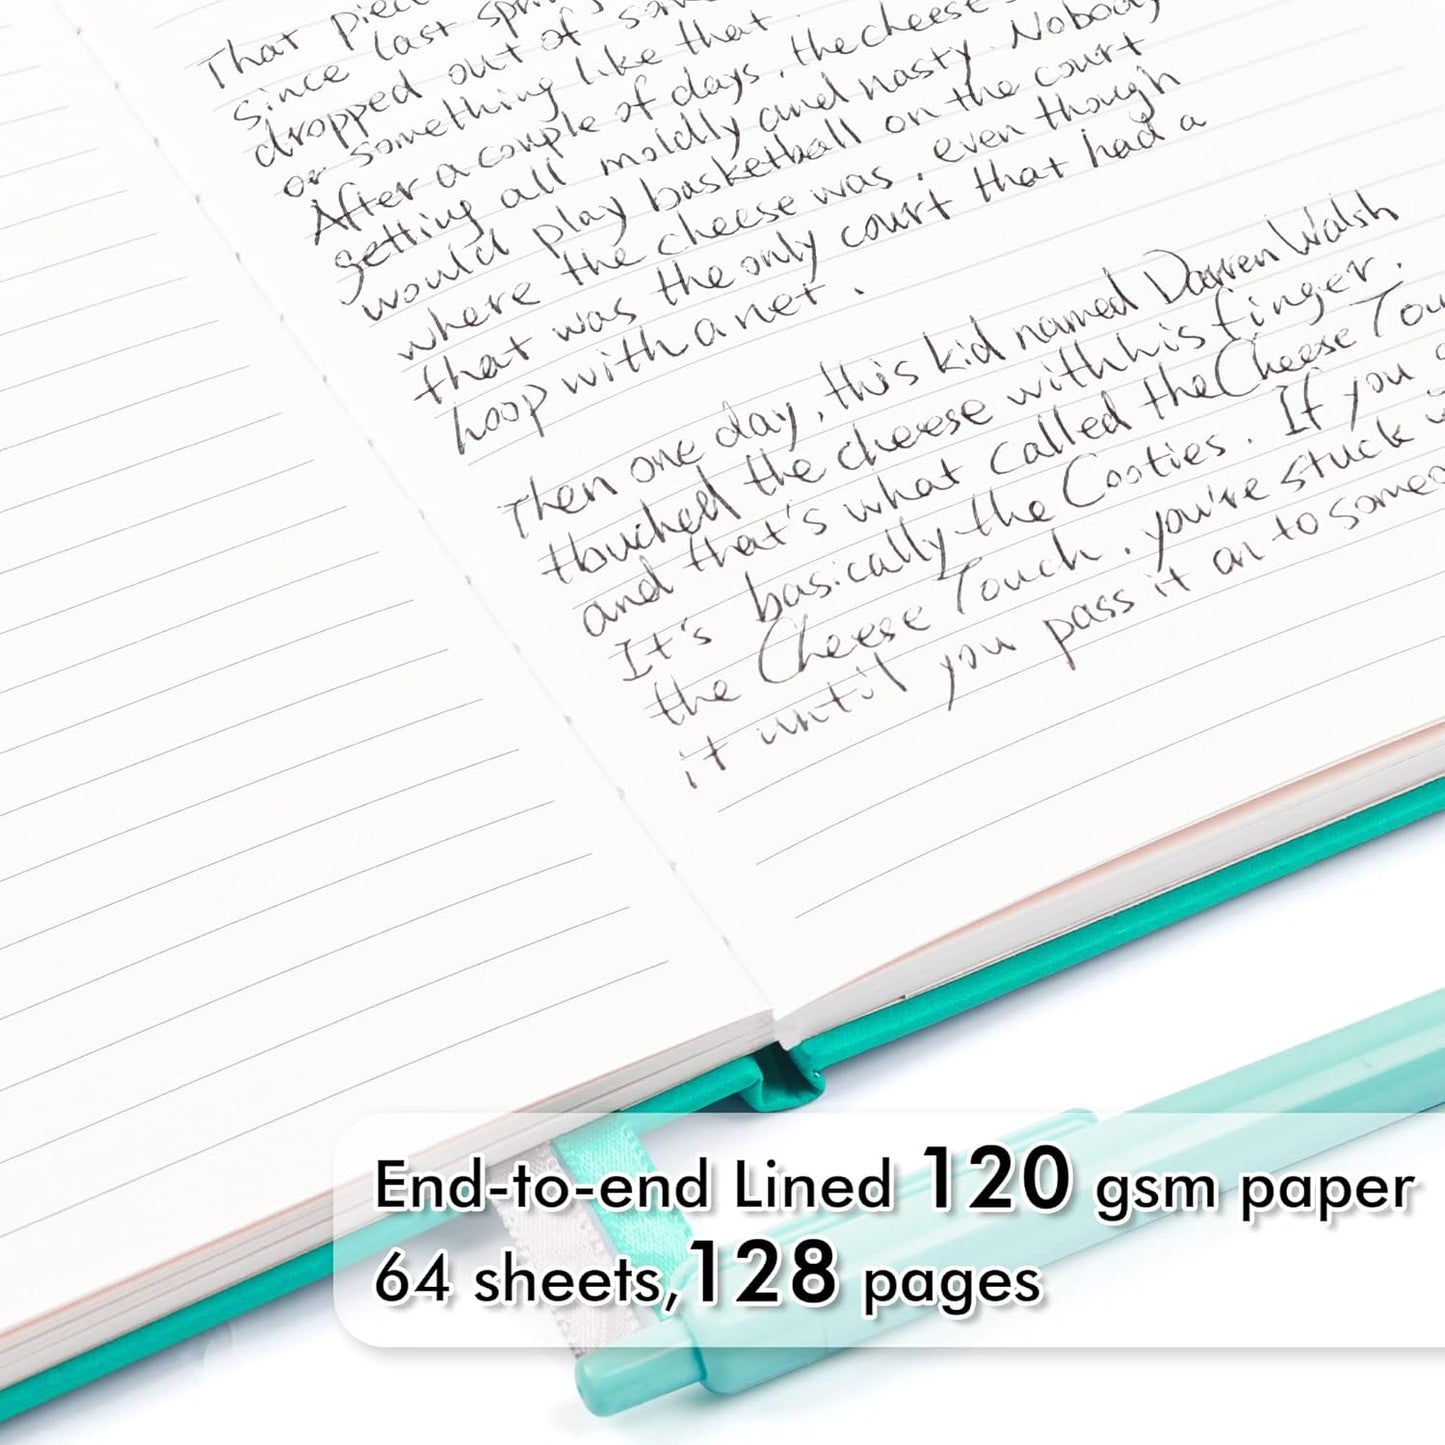 That piec
since last spr
dropped out of
or something like that
After a couple of days, the cheese
getting all moldly and nasty. Nobody
would play basketball on the court
where the cheese was, even though
that was the only court that had a
hoop with a net.
Then one day, this kid named Darren Walsh
thouched the cheese with his finger.
and that's what called the Cheese Tou
It's basically the Cooties. If you
the Cheese Touch, you're stuck
it until you pass it on to someo
End-to-end Lined 120 gsm paper
64 sheets,128 pages